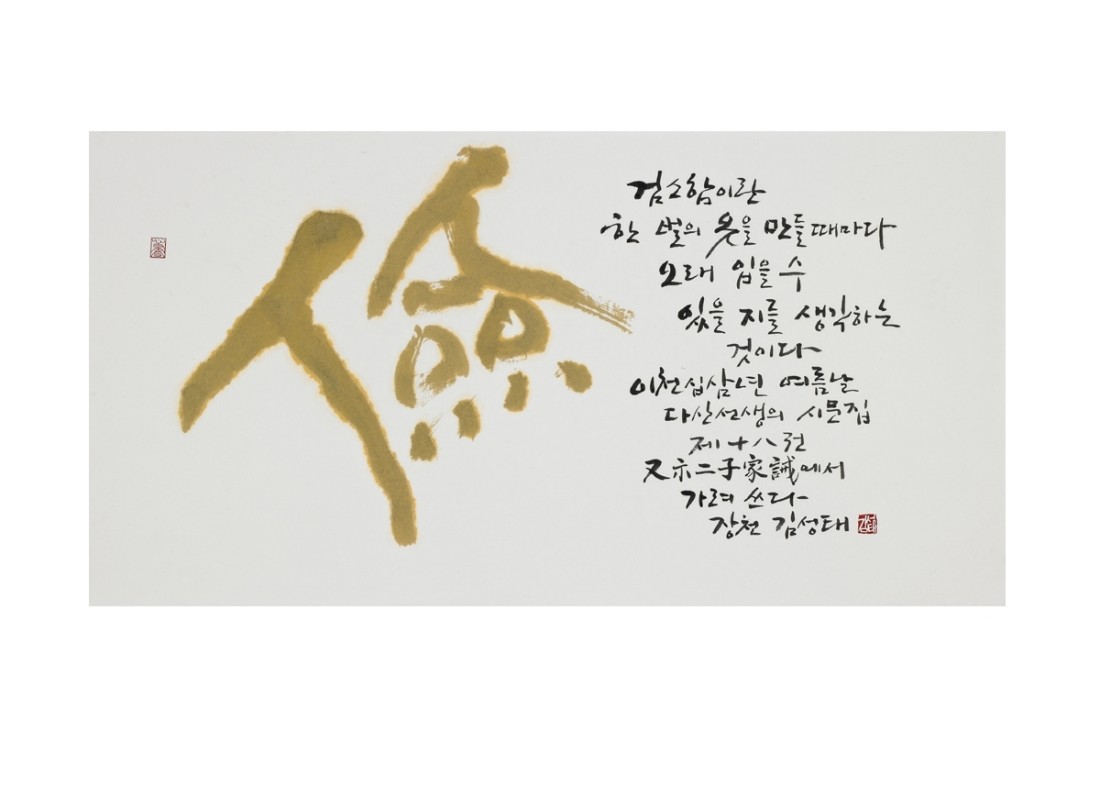 儉
검소함이란
한 벌의 옷을 만들때마다
오래 입을 수
있을 지를 생각하는
것이다
이천십삼년 여름날
다산선생의 시문집
제十八권
又示二子家誡에서
가려 쓰다
장천 김성태